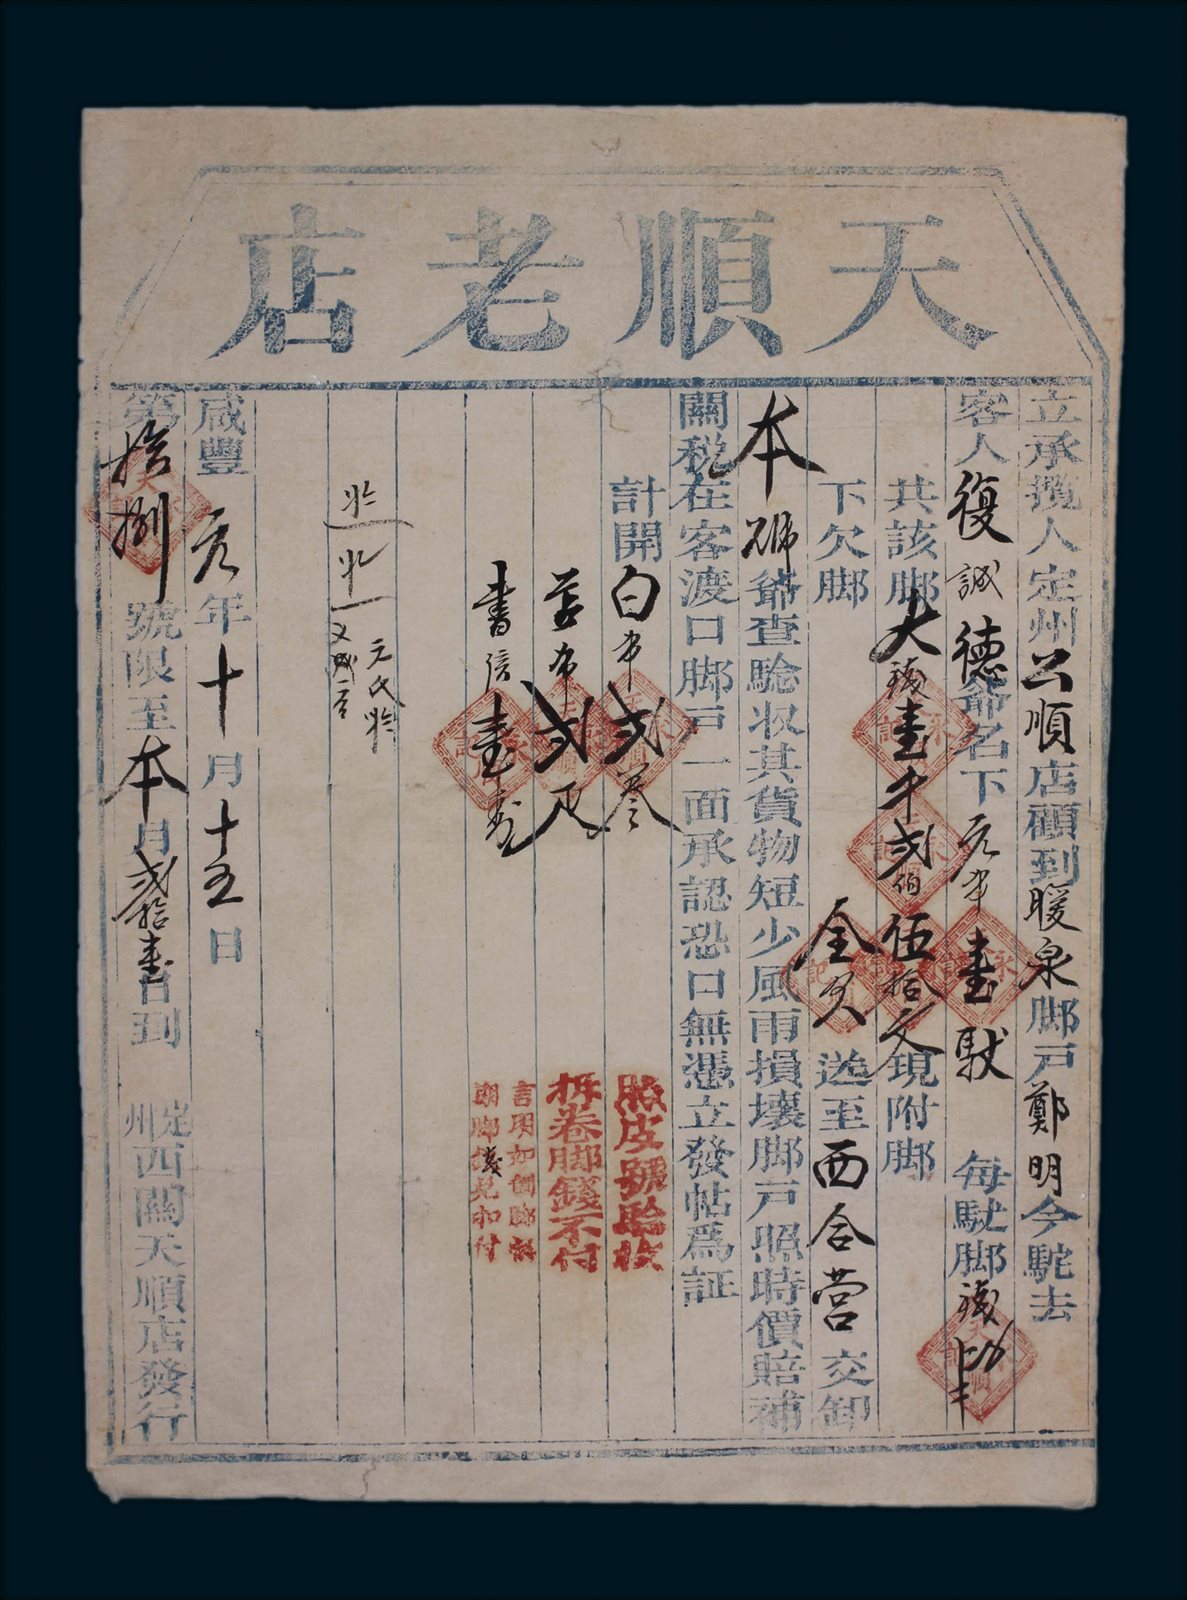 天順老店
立承攬人定州公順店顧到暖泉脚戸鄭明今駝去
客人復誠德爺名下元布壹馱 每馱脚錢
共該脚大錢壹千弍伯伍拾文現附脚
下欠脚全欠送至西合营交卸
本號爺查驗収其貨物短少風雨損壞脚戸照時價賠補
關税在客渡口脚戸一面承認恐口無憑立發帖爲証
計開白布弍卷
照皮號驗收
布弍疋
拆卷脚錢不付
言明如
書信壹封
脚錢見扣付
咸豐元年十月十五日
第拾捌號限至本月弍拾壹日到 定州西關天順店發行